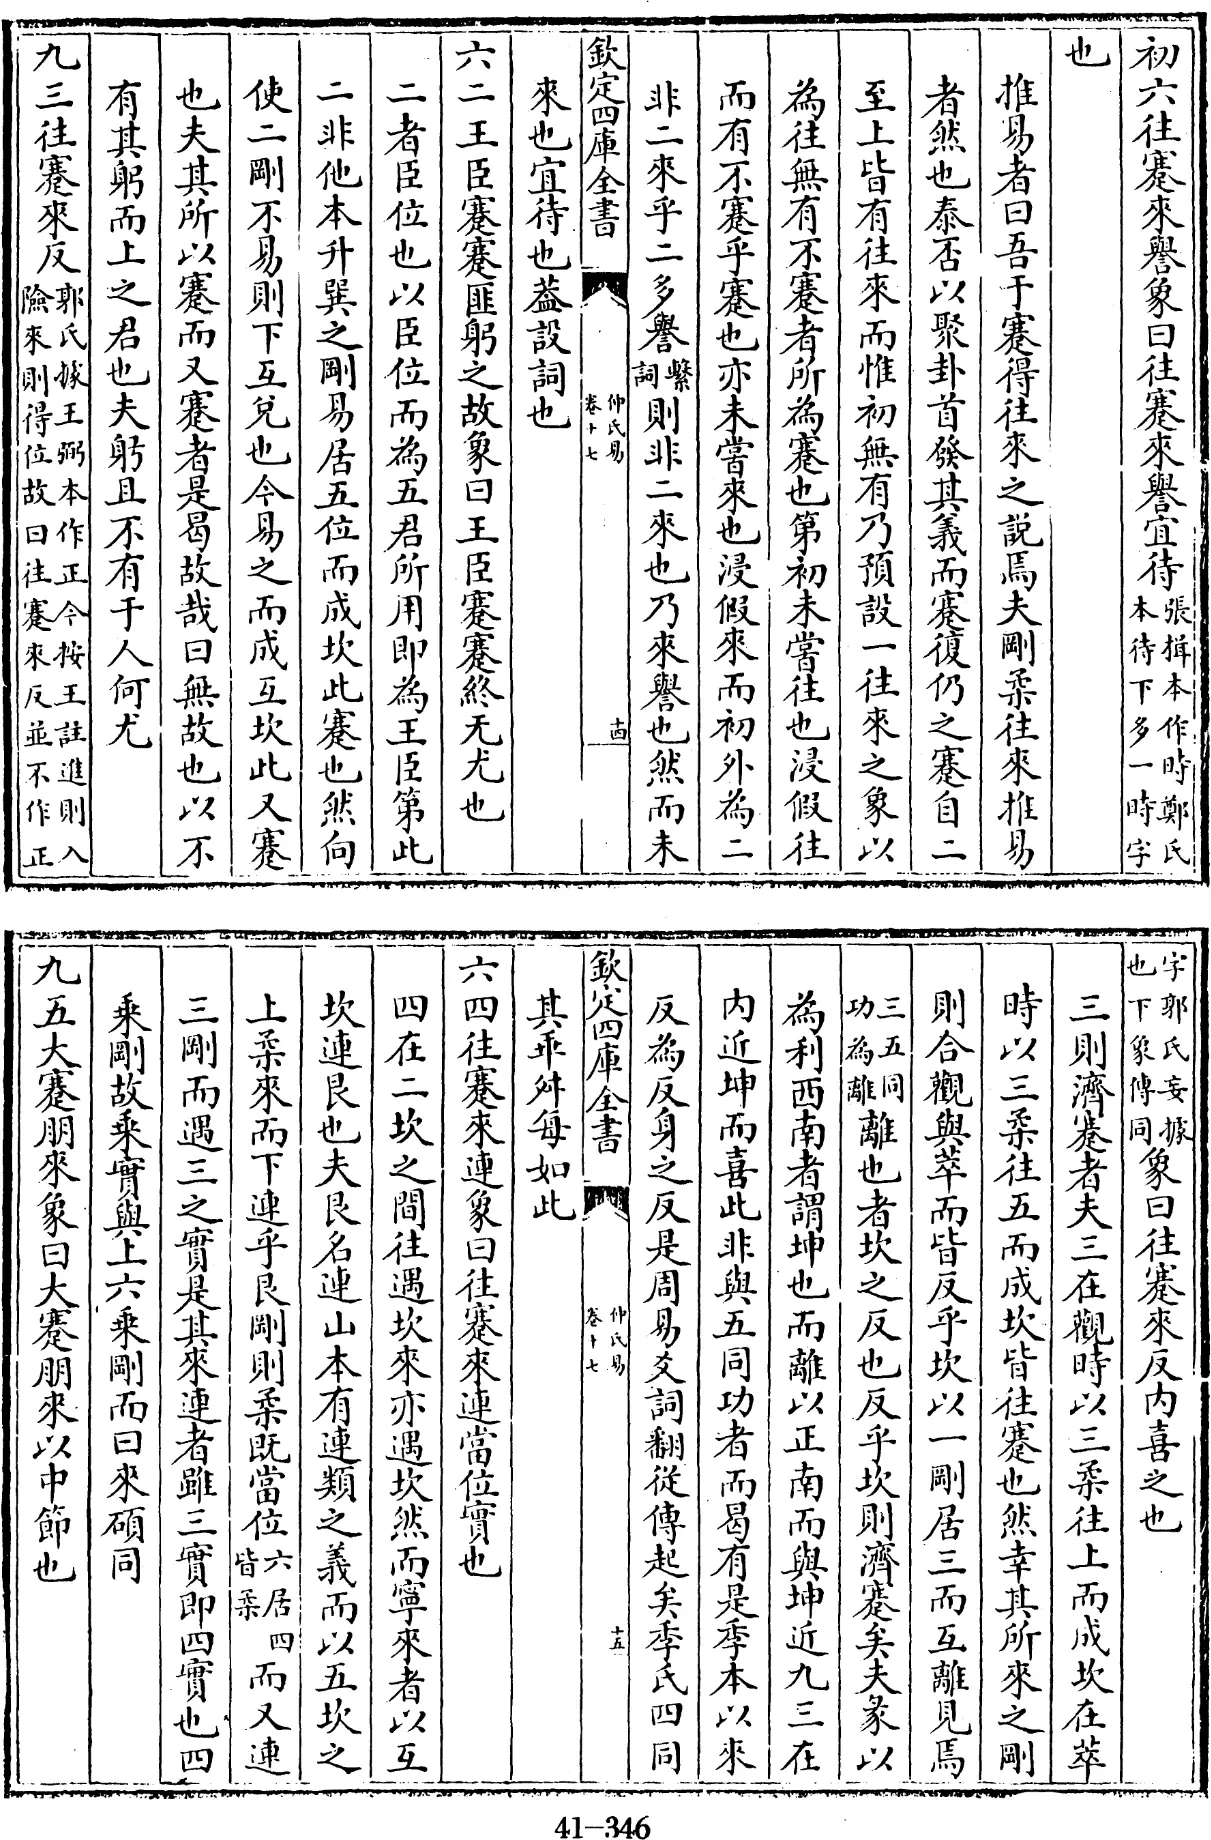 初六往蹇來譽象曰往蹇來譽宜待張揖本作時鄭氏本待下多一時字
也
推易者曰吾于蹇得往來之説焉夫剛柔往來推易
者然也泰否以聚卦首發其義而蹇復仍之蹇自二
至上皆有往來而惟初無有乃預設一往來之象以
為往無有不蹇者所為蹇也第初未嘗往也浸假往
而有不蹇乎蹇也亦未嘗來也浸假來而初外為二
非二來乎二多譽繫詞則非二來也乃來譽也然而未
欽定四庫全書
仲氏易
卷十七
十四
來也宜待也葢設詞也
六二王臣蹇蹇匪躬之故象曰王臣蹇蹇終无尤也
二者臣位也以臣位而為五君所用即為王臣第此
二非他本升巽之剛易居五位而成坎此蹇也然向
使二剛不易則下互兌也今易之而成互坎此又蹇
也夫其所以蹇而又蹇者是曷故哉曰無故也以不
有其躬而上之君也夫躬且不有于人何尤
九三往蹇來反郭氏據王弼本作正今按王註進則入險來則得位故曰往蹇來反並不作正
字郭氏妄據也下象傳同象曰往蹇來反内喜之也
三則濟蹇者夫三在觀時以三柔往上而成坎在萃
時以三柔往五而成坎皆往蹇也然幸其所來之剛
則合觀與萃而皆反乎坎以一剛居三而互離見焉
三五同功為離離也者坎之反也反乎坎則濟蹇矣夫彖以
為利西南者謂坤也而離以正南而與坤近九三在
内近坤而喜此非與五同功者而曷有是季本以來
反為反身之反是周易爻詞翻從傳起矣季氏四同
欽定四庫全書
仲氏易
卷十七
十五
其乖舛每如此
六四往蹇來連象曰往蹇來連當位實也
四在二坎之間往遇坎來亦遇坎然而寧來者以互
坎連艮也夫艮名連山本有連類之義而以五坎之
上柔來而下連乎艮剛則柔既當位六居四皆柔而又連
三剛而遇三之實是其來連者雖三實即四實也四
乘剛故乘實與上六乘剛而曰來碩同
九五大蹇朋來象曰大蹇朋來以中節也
41-346